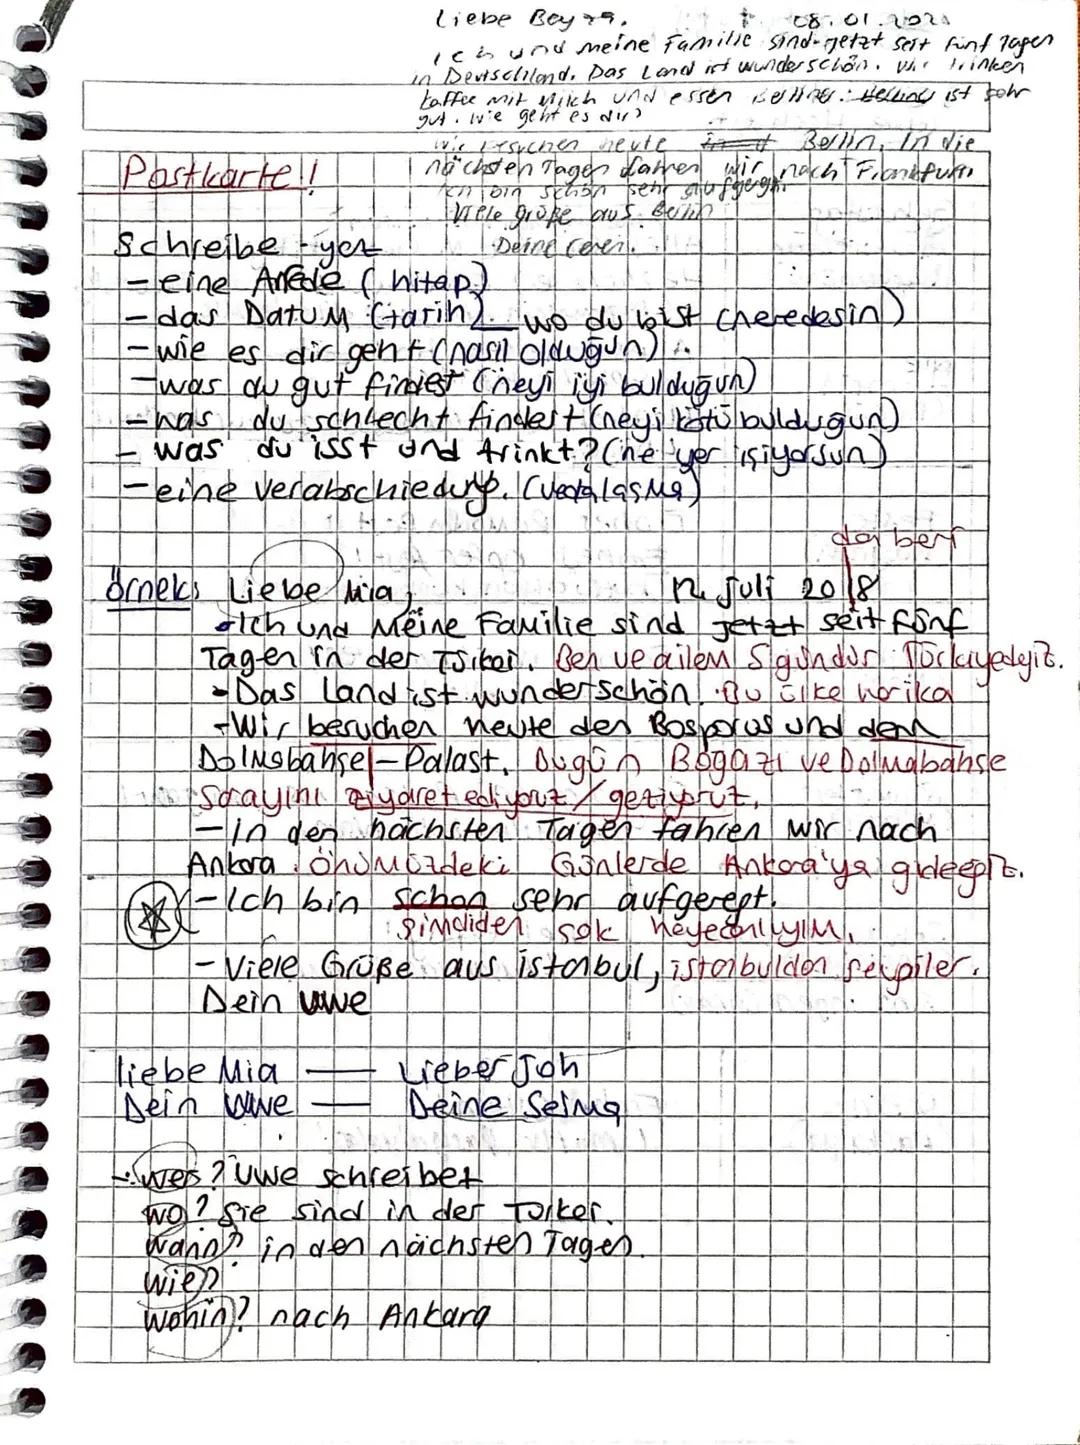 Liebe Beyza, 08.01.202
Ich und meine Familie sind jetzt seit fünf Tagen
in Deutschland. Das Land ist wunderschön. Wir trinken
kaffee mit Milch und essen ist sehr
gut. Wie geht es dir?
Wir besuchen heute Berlin. In die
nächsten Tagen fahren wir nach Frankfurt.
Ich bin schon sehr aufgeregt.
Viele grüße aus Berlin
Deine Ceren.
Postkarte!!
Schreibe - yaz
- eine Anrede (hitap)
- das Datum (tarih) wo du bist (neredesin)
- wie es dir geht (nasıl olduğun)
- was du gut findest (neyi iyi bulduğun)
- was du schlecht findest (neyi kötü bulduğun)
- was du isst und trinkt? (ne yer içiyorsun)
- eine Verabschiedung. (vedalaşma)
den beri
örnek: Liebe Mia, 12. Juli 2018
- Ich und Meine Familie sind jetzt seit fünf
Tagen in der Türkei. Ben ve ailem 5 gündür Türkiyedeyiz.
- Das Land ist wunderschön. Bu ülke harika
- Wir besuchen heute den Bosporus und dem
Dolmabahşe - Palast. Bugün Boğazı ve Dolmabahşe
Sarayını ziyaret ediyoruz / geziyoruz.
- In den nächsten Tagen fahren wir nach
Ankara. Önümüzdeki Günlerde Ankara'ya gideceğiz.
- Ich bin schon sehr aufgeregt.
şimdiden çok heyecanlıyım.
- Viele Grüße aus istanbul, istanbuldan sevgiler.
Dein Uwe
liebe Mia — Lieber Joh
Dein Uwe — Deine Selma
- wer? Uwe schreibet
wo? Sie sind in der Türkei.
Wann? in den nächsten Tagen.
Wie?
Wohin? nach Ankara